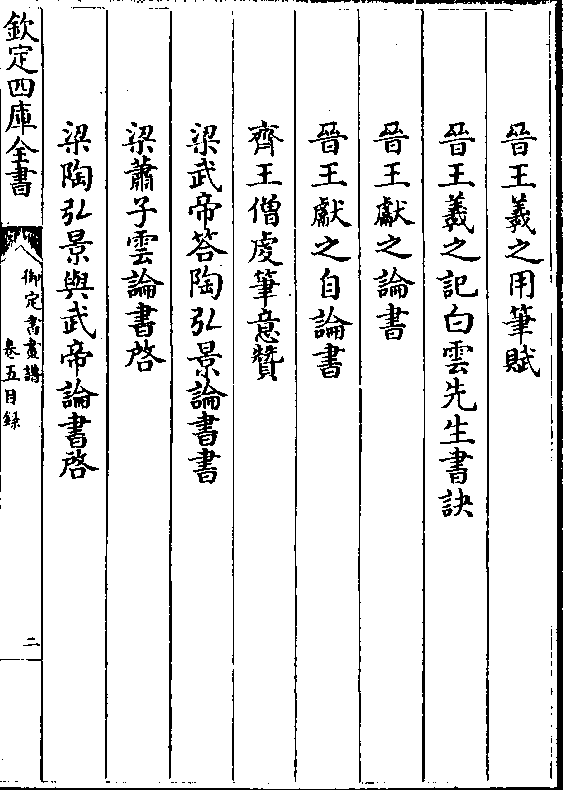 晉王羲之用筆賦
晉王羲之記白雲先生書訣
晉王獻之論書
晉王獻之自論書
齊王僧虔筆意贊
梁武帝答陶弘景論書書
梁蕭子雲論書啓
梁陶弘景與武帝論書啓
欽定四庫全書
御定書畫譜
卷五目錄
二